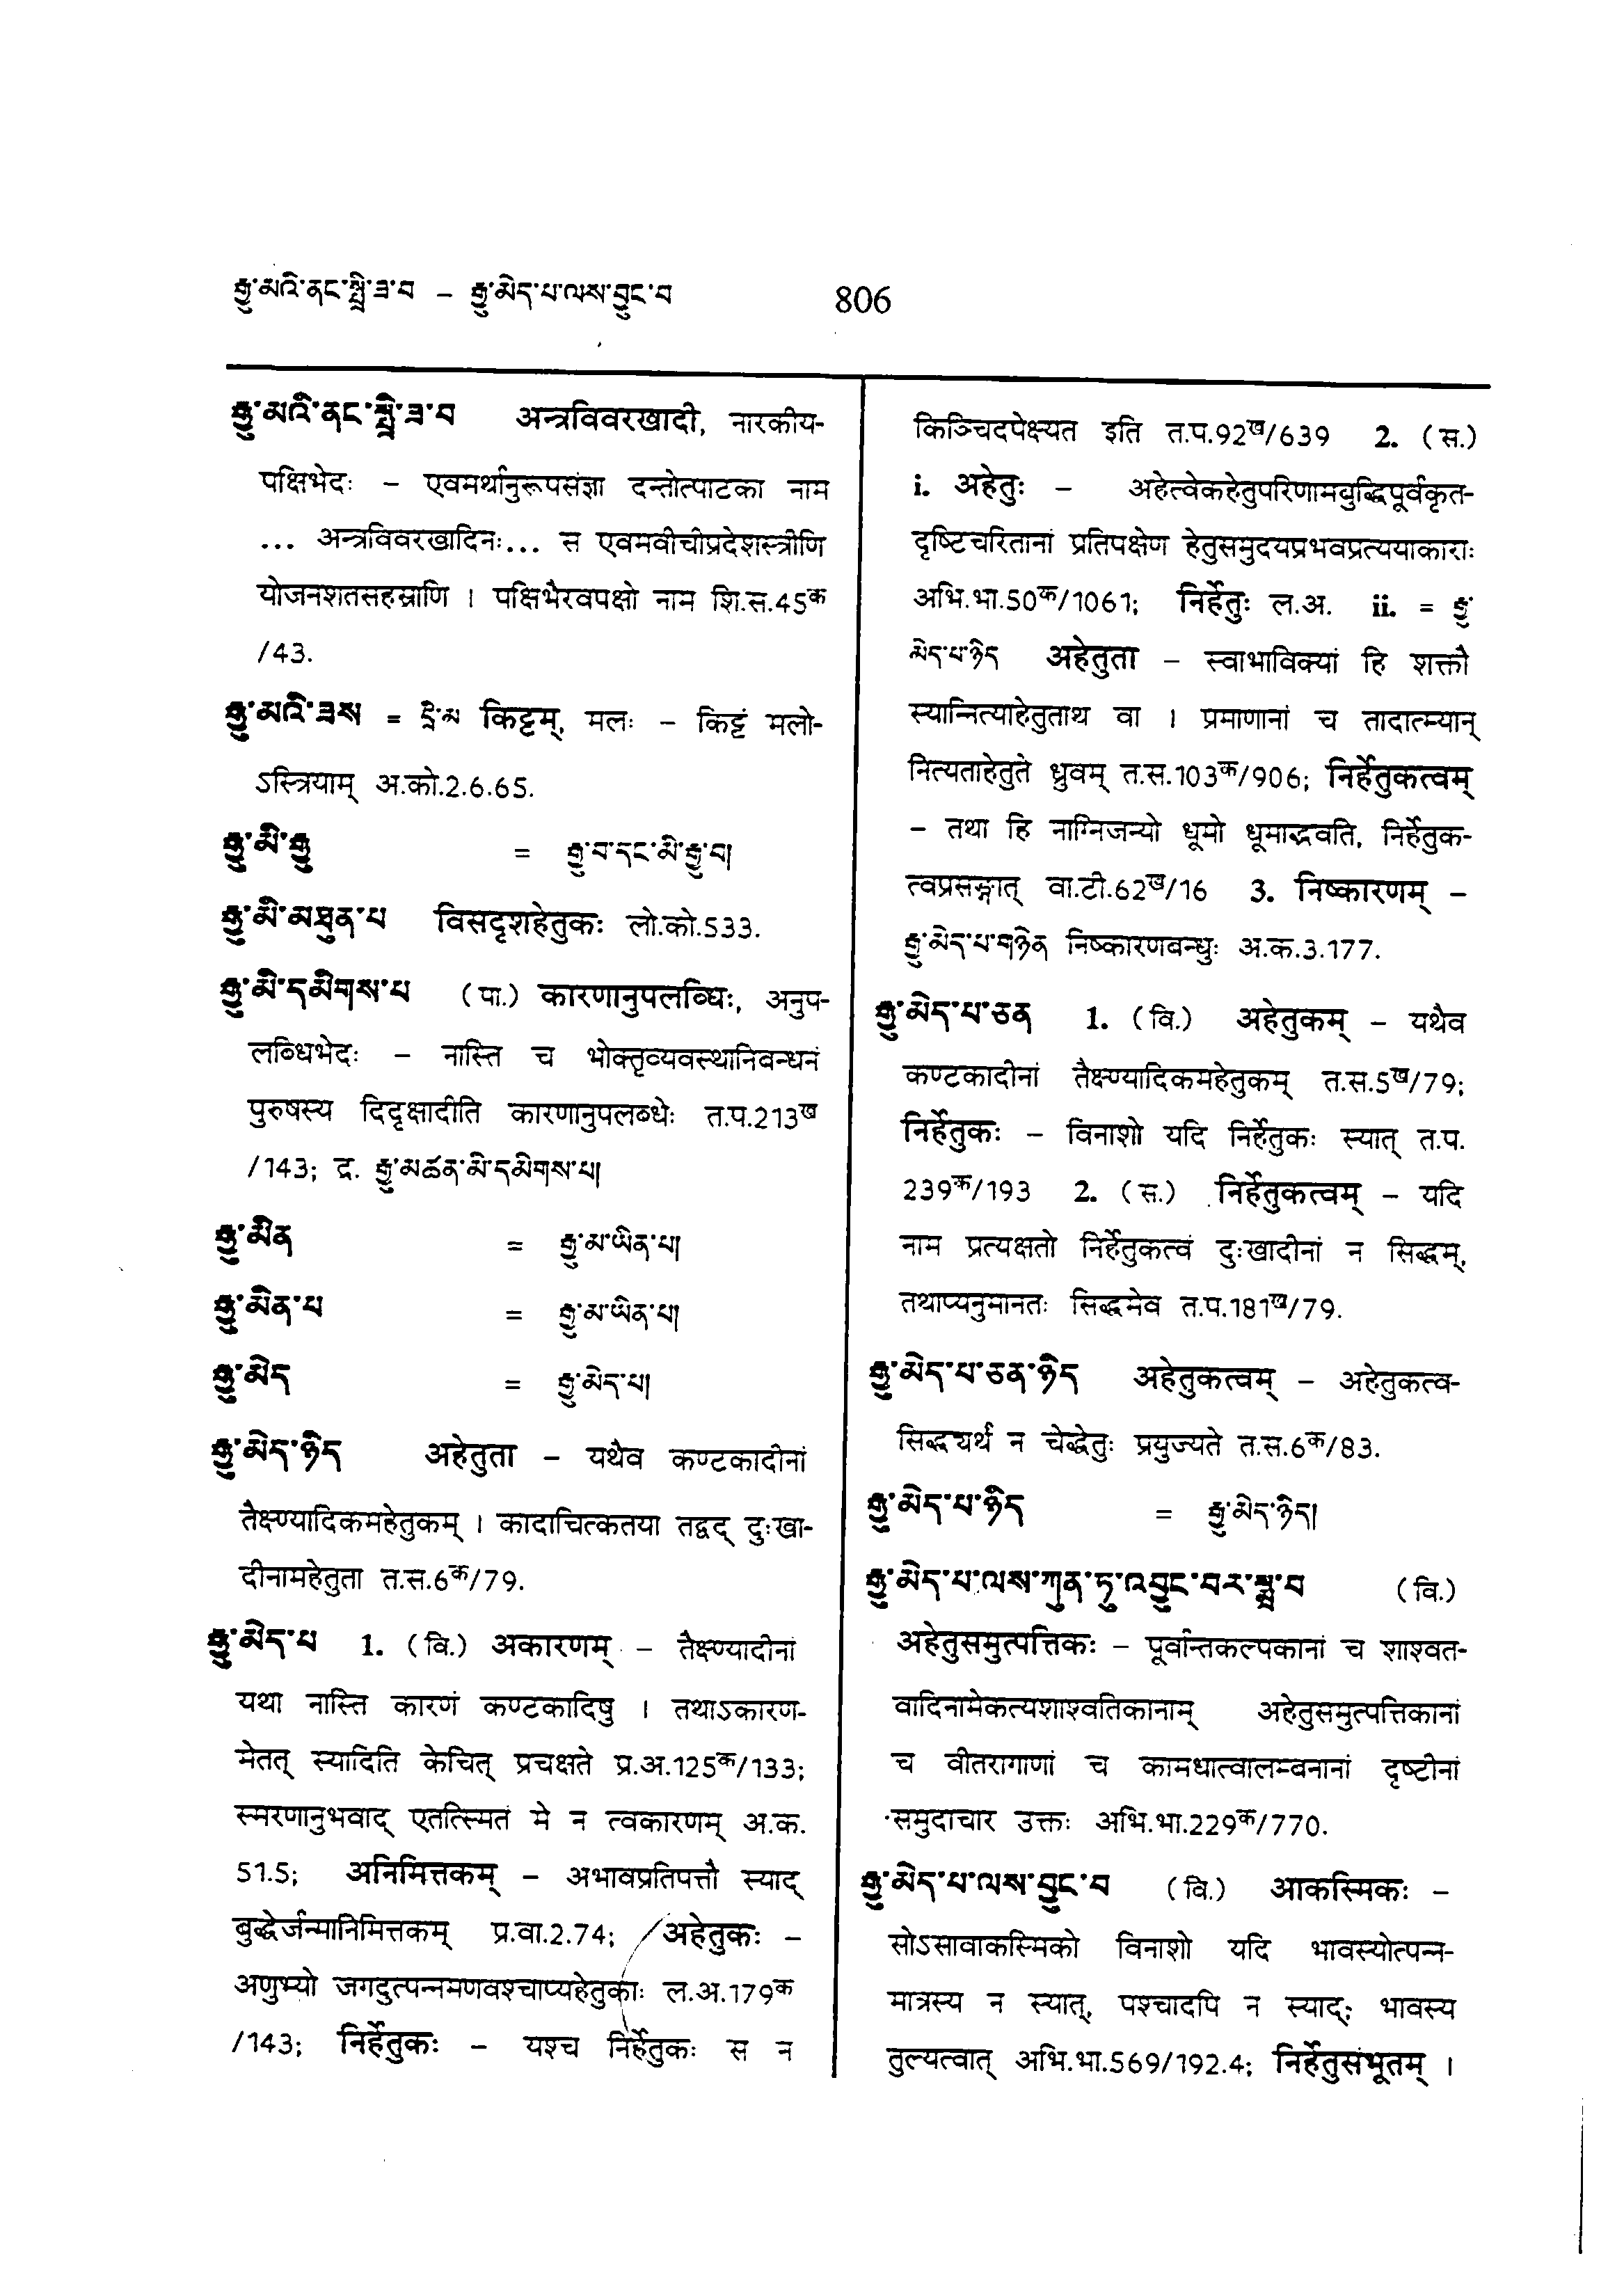 རྒྱུ་མའི་ནང་གླིང་ཟ་བ – རྒྱུ་མེད་པ་ལས་བྱུང་བ 806
རྒྱུ་མའི་ནང་ ཟ་བ अन्त्रविवरखादी, नारकीय-
पक्षिभेदः – एवमर्थानुरूपसंज्ञा दन्तोत्पाटका नाम
... अन्त्रविवरखादिनः... स एवमवीचीप्रदेशस्त्रीणि
योजनशतसहस्राणि । पक्षिभैरवपक्षो नाम शि.स.45क
/43.
རྒྱུ་མའི་ཟས = དྲི་མ किट्टम्, मलः – किट्टं मलो-
ऽस्त्रियाम् अ.को.2.6.65.
རྒྱུ་མི་རྒྱུ = རྒྱུ་བ་དང་མི་རྒྱུ་བ།
རྒྱུ་མི་མཐུན་པ विसदृशहेतुकः लो.को.533.
རྒྱུ་མི་དམིགས་པ (पा.) कारणानुपलब्धिः, अनुप-
लब्धिभेदः – नास्ति च भोक्तृव्यवस्थानिबन्धनं
पुरुषस्य दिदृक्षादीति कारणानुपलब्धेः त.प.213ख
/143; द्र. རྒྱུ་མཚན་མི་དམིགས་པ།
རྒྱུ་མིན = རྒྱུ་མ་ཡིན་པ།
རྒྱུ་མིན་པ = རྒྱུ་མ་ཡིན་པ།
རྒྱུ་མེད = རྒྱུ་མེད་པ།
རྒྱུ་མེད་ཉིད अहेतुता – यथैव कण्टकादीनां
तैक्ष्ण्यादिकमहेतुकम् । कादाचित्कतया तद्वद् दुःखा-
दीनामहेतुता त.स.6क/79.
རྒྱུ་མེད་པ 1. (वि.) अकारणम् – तैक्ष्ण्यादीनां
यथा नास्ति कारणं कण्टकादिषु । तथाऽकारण-
मेतत् स्यादिति केचित् प्रचक्षते प्र.अ.125क/133;
स्मरणानुभवाद् एतत्स्मितं मे न त्वकारणम् अ.क.
51.5; अनिमित्तकम् – अभावप्रतिपत्तौ स्याद्
बुद्धेर्जन्मानिमित्तकम् प्र.वा.2.74; अहेतुकः –
अणुभ्यो जगदुत्पन्नमणवश्चाप्यहेतुकाः ल.अ.179क
/143; निर्हेतुकः – यश्च निर्हेतुकः स न
किञ्चिदपेक्ष्यत इति त.प.92ख/639 2. (स.)
i. अहेतुः – अहेत्वेकहेतुपरिणामबुद्धिपूर्वकृत-
दृष्टिचरितानां प्रतिपक्षेण हेतुसमुदयप्रभवप्रत्ययाकाराः
अभि.भा.50क/1061; निर्हेतुः ल.अ. ii. = རྒྱུ་
མེད་པ་ཉིད अहेतुता – स्वाभाविक्यां हि शक्तौ
स्यान्नित्याहेतुताथ वा । प्रमाणानां च तादात्म्यान्
नित्यताहेतुते ध्रुवम् त.स.103क/906; निर्हेतुकत्वम्
– तथा हि नाग्निजन्यो धूमो धूमाद्भवति, निर्हेतुक-
त्वप्रसङ्गात् वा.टी.62ख/16 3. निष्कारणम् –
རྒྱུ་མེད་པ་གཉེན निष्कारणबन्धुः अ.क.3.177.
རྒྱུ་མེད་པ་ཅན 1. (वि.) अहेतुकम् – यथैव
कण्टकादीनां तैक्ष्ण्यादिकमहेतुकम् त.स.5ख/79;
निर्हेतुकः – विनाशो यदि निर्हेतुकः स्यात् त.प.
239क/193 2. (स.) निर्हेतुकत्वम् – यदि
नाम प्रत्यक्षतो निर्हेतुकत्वं दुःखादीनां न सिद्धम्,
तथाप्यनुमानतः सिद्धमेव त.प.181ख/79.
རྒྱུ་མེད་པ་ཅན་ཉིད अहेतुकत्वम् – अहेतुकत्व-
सिद्ध्यर्थं न चेद्धेतुः प्रयुज्यते त.स.6क/83.
རྒྱུ་མེད་པ་ཉིད = རྒྱུ་མེད་ཉིད།
རྒྱུ་མེད་པ་ལས་ཀུན་ཏུ་འབྱུང་བར་སྨྲ་བ (वि.)
अहेतुसमुत्पत्तिकः – पूर्वान्तकल्पकानां च शाश्वत-
वादिनामेकत्यशाश्वतिकानाम् अहेतुसमुत्पत्तिकानां
च वीतरागाणां च कामधात्वालम्बनानां दृष्टीनां
समुदाचार उक्तः अभि.भा.229क/770.
རྒྱུ་མེད་པ་ལས་བྱུང་བ (वि.) आकस्मिकः –
सोऽसावाकस्मिको विनाशो यदि भावस्योत्पन्न-
मात्रस्य न स्यात्, पश्चादपि न स्याद्; भावस्य
तुल्यत्वात् अभि.भा.569/192.4; निर्हेतुसंभूतम् ।